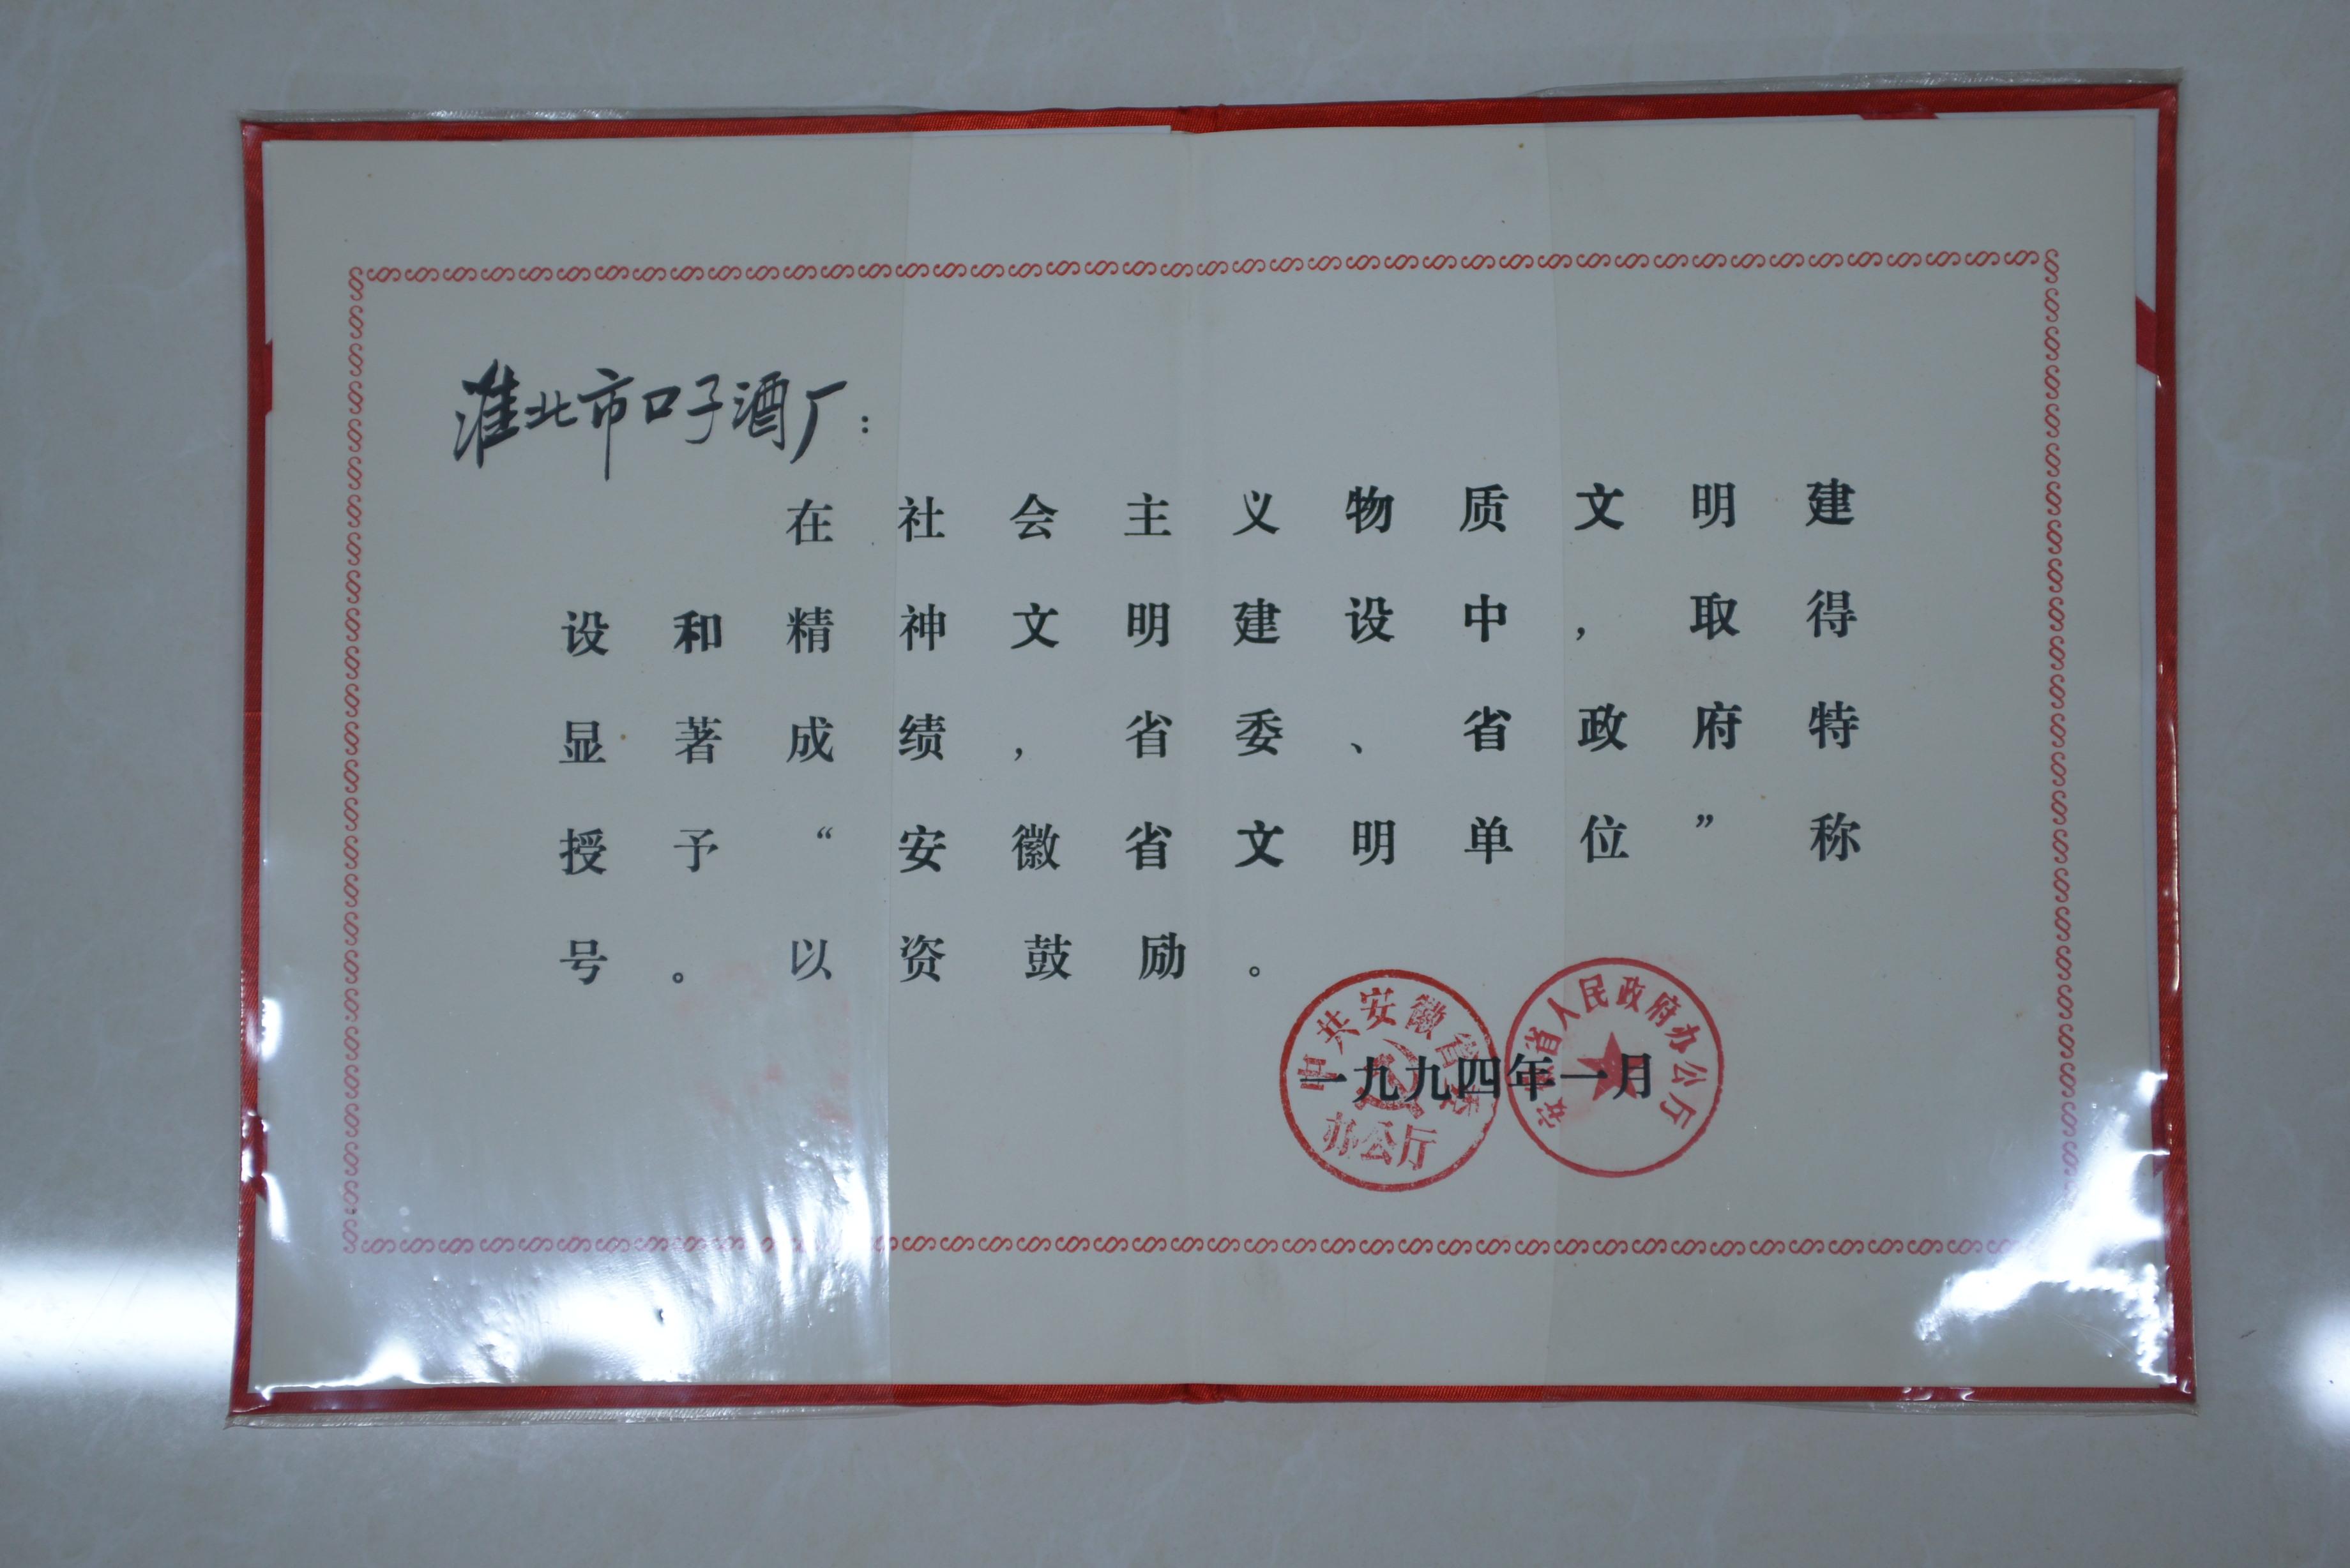 淮北市口子酒厂:
在社会主义物质文明建
设和精神文明建设中,取得
显著成绩,省委、省政府特
授予“安徽省文明单位”称
号。以资鼓励。
中共安徽省委
办公厅
安徽省人民政府办公厅
一九九四年一月